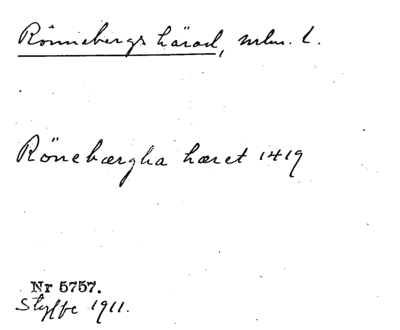 Rönnebergs härad, mlm. l.
Rönebærgha hæret 1419
Nr 5757.
Styffe 1911.